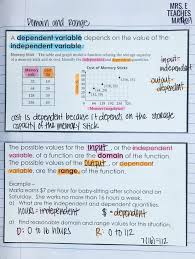 MRS. E
TEACHES
MATH
Domain and Range
A dependent variable depends on the value of the
independent variable.
Memory Stick - The table and graph model a function relating the storage capacity
of a memory stick and its cost. Identify the independent and dependent
input-
independent
output-
dependent
Cost of Memory Sticks
cost is dependent because it depends on the storage
capacity of the memory stick
The possible values for the input, or the independent
variable, of a function are the domain of the function.
The possible values of the output, or dependent
variable, are the range of the function.
Example -
Marla earns $7 per hour for baby-sitting after school and on
Saturday. She works no more than 16 hours a week.
a) What are the independent and dependent quantities?
hours = independent $ = dependent
b) Find reasonable domain and range values for this situation.
D: 0 to 16 hours R: 0 to 112
7(16)=112